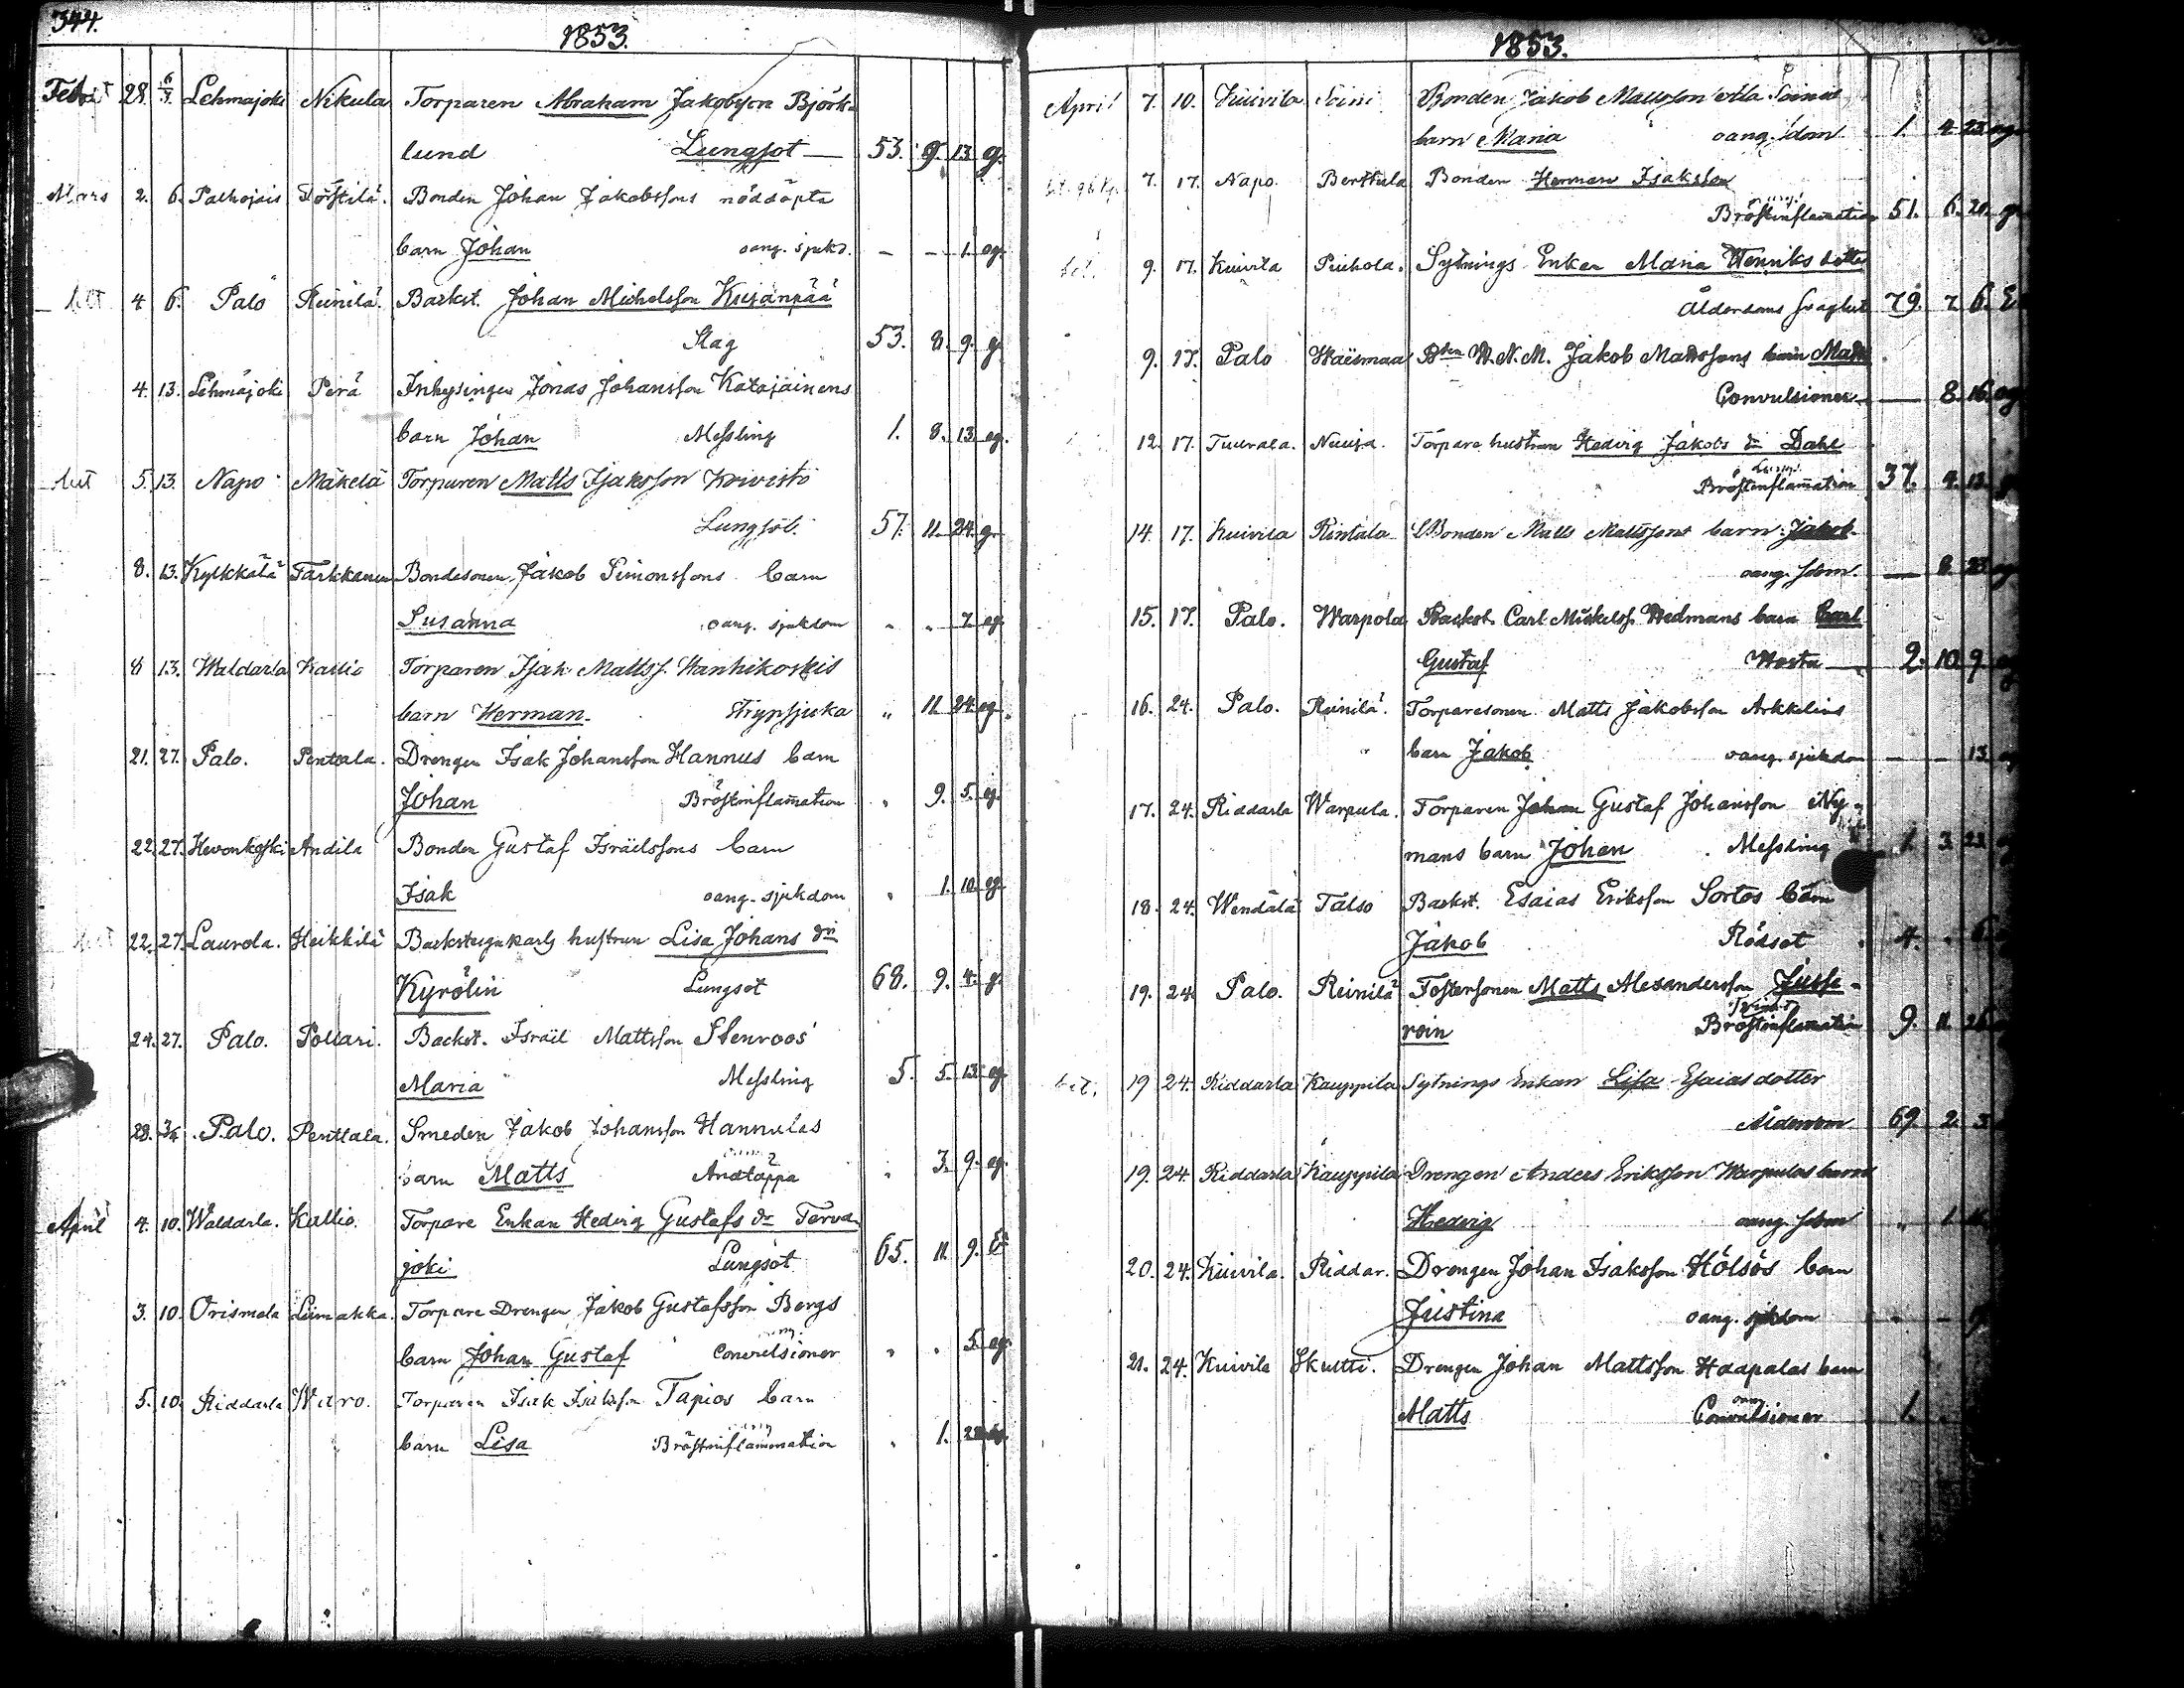 344.
1853.
Febr 28. 6/3. Lehmajoki Nikula Torparen Abraham Jakobsson Björk-
lund Lungsot 53. 9. 13. g.
Mars 2. 6. Palhojais Bonden Johan Jakobssons nöddöpta
barn Johan oang. sjukd. - - 1. og.
4. 6. Palo Reinilä. Backst. Johan Michelsson Kujanpää
Slag 53. 8. 9. g.
4. 13. Lehmäjoki Perä Inhysingen Jonas Johansson Katajainens
barn Johan Messling 1. 8. 13. og.
5. 13. Napo Mäkelä Torparen Matts Isaksson Koivisto
Lungsot. 57. 11. 24. g.
8. 13. Kylkkälä Tarkkanen Bondesonen Jakob Simonssons barn
Susanna oang. sjukdom " " 7. og.
8 13. Waldarla Kallio Torparen Isak Mattss. Wanhikoskis
barn Herman. Strypsjuka " 11. 24. og.
21. 27. Palo. Penttala. Drengen Isak Johansson Hannus barn
Johan Bröstinflamation " 9. 5. og.
22. 27. Hevonkoski Andila Bonden Gustaf Israelssons barn
Isak oang. sjukdom " 1. 10. og.
22. 27. Laurola. Heikkilä Backstugukarls hustrun Lisa Johans dr
Kyrölin Lungsot 68. 9. 4. g.
24. 27. Palo. Pollari. Backst. Israël Mattsson Stenroos
Maria Messling 5. 5. 13. og.
28. 3/4. Palo. Penttala. Smeden Jakob Johansson Hannulas
barn Matts Andtäppa " 3. 9. og.
April 4. 10. Waldarla. Kallio. Torpare Enkan Hedvig Gustafs dr Terva-
joki Lungsot 65. 11. 9. E.
3. 10. Orismala Liimakka. Torpare Drengen Jakob Gustafsson Bergs
barn Johan Gustaf Convulsioner " " 5. og.
5. 10. Riddarla Waro. Torparen Isak Isaksson Tapios barn
barn Lisa Bröstinflammation " 1. 28. og.
1853.
April 7. 10. Kuivila Soini Bonden Jakob Mattsson Ala Soinis
barn Maria oang. sdom 1. 4. 23. og.
7. 17. Napo. Berttula Bonden Herman Isaksson
Bröstinflamation 51. 6. 20. g.
bet. 9. 17. Kuivila Piuhola. Sytnings Enkan Maria Henriks dotter
Ålderdoms svaghet 79. 7. 6. E.
9. 17. Palo Waismaa Jakob Mattssons barn Matts
Convulsioner - 8. 16. og
12. 17. Tuurala. Nuuja. Torpare hustrun Hedvig Jakobs dr Dahl
Bröstinflamation 37. 9. 13. g
14. 17. Kuivila Rintala Bonden Matts Mattssons barn Jakob
oang. sdom. - 8. 23. og
15. 17. Palo. Warpola Backst. Carl Mickelss. Wedmans barn Carl
Gustaf Hosta 2. 10. 9. og
16. 24. Palo. Reinilä. Torparesonen Matts Jakobsson Arkkelins
barn Jakob oang. sjukdom - - 13. og
17. 24. Riddarla Warpula. Torparen Johan Gustaf Johansson Ny-
mans barn Johan Messling 1. 3. 23.
18. 24. Wendälä Talso Backst. Esaias Eriksson Sortos barn
Jakob Rödsot 4. - 6.
19. 24. Palo. Reinilä Fostersonen Matts Alexandersson Jusse-
roin Bröstinflamation 9. 11. 26.
bet. 19. 24. Riddarla Kauppila Sytnings Enkan Lisa Esaias dotter
Ålderdom 69. 2. 3.
19. 24. Riddarla Kauppila Drengen Anders Eriksson Warpulas barn
Hedvig oang. sdom " 1.
20. 24. Kuivila. Riddar. Drengen Johan Isaksson Hölsös barn
Justina oang. sjukdom - -
21. 24. Kuivila Skutti. Drengen Johan Mattsson Haapalas barn
Matts Convulsioner 1.